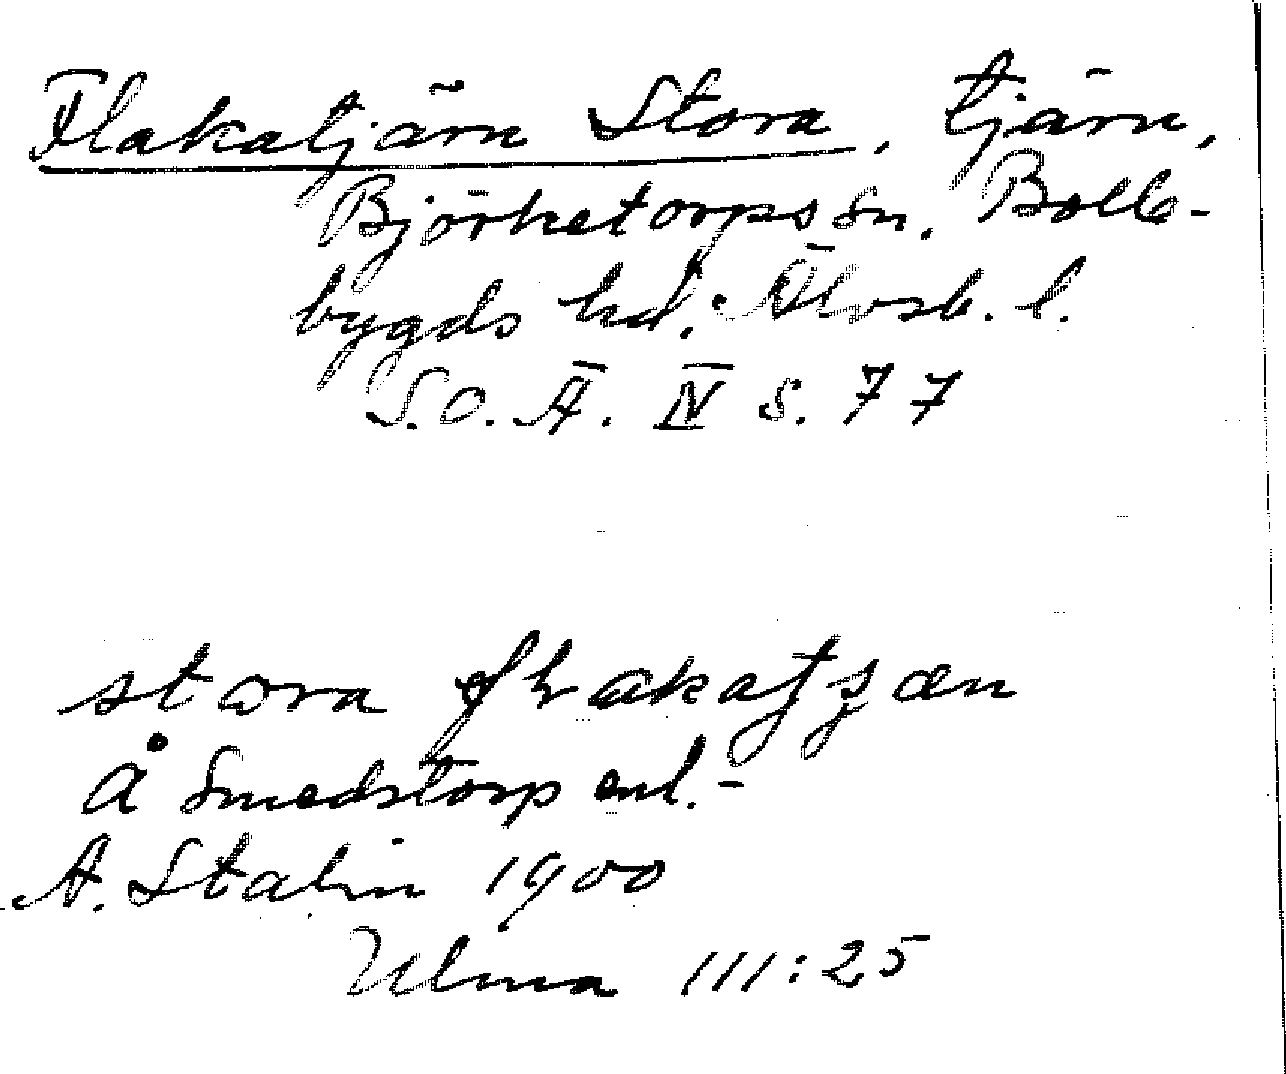 Flakatjärn Stora, tjärn,
Björketorps sn. Bolle-
bygds hd. Älvsb. l.
S.O.Ä. IV s. 77
stora flakatjæn
å Smedstorp enl.-
A. Stalin 1900
Ulma 111:25